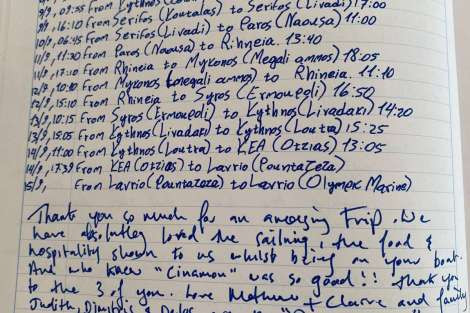 9/9, 09:55 From Kythnos
9/9, 16:10 From Serifos (Koutalas) to Serifos (Livadi) 17:00
10/9, 06:45 From Serifos (Livadi) to Paros (Naousa) 11:00
11/9, 11:30 From Paros (Naousa) to Rihneia. 13:40
11/9, 17:10 From Rhineia to Mykonos (Megali ammos) 18:05
12/9, 10:10 From Mykonos (Megali ammos) to Rhineia. 11:10
12/9, 15:10 From Rhineia to Syros (Ermoupoli) 16:50
13/9 10:15 From Syros (Ermoupoli) to Kythnos (Livadaki) 14:20
13/9, 15:05 From Kythnos (Livadaki) to Kythnos (Loutra) 15:25
14/9, 11:00 From Kythnos (Loutra) to KEA (Otzias) 13:05
14/9, 17:39 From KEA (Otzias) to Lavrio (Pountazeza)
15/9, From Lavrio (Pountazeza) to Lavrio (Olympic Marine)
Thank you so much for an amazing trip. We
have absolutley loved the sailing, the food &
hospitality shown to us whilst being on your boat.
And who knew "Cinamon" was so good!! Thank you
to the 3 of you. Love Mathew + Claire and family
Judith, Dimitris &